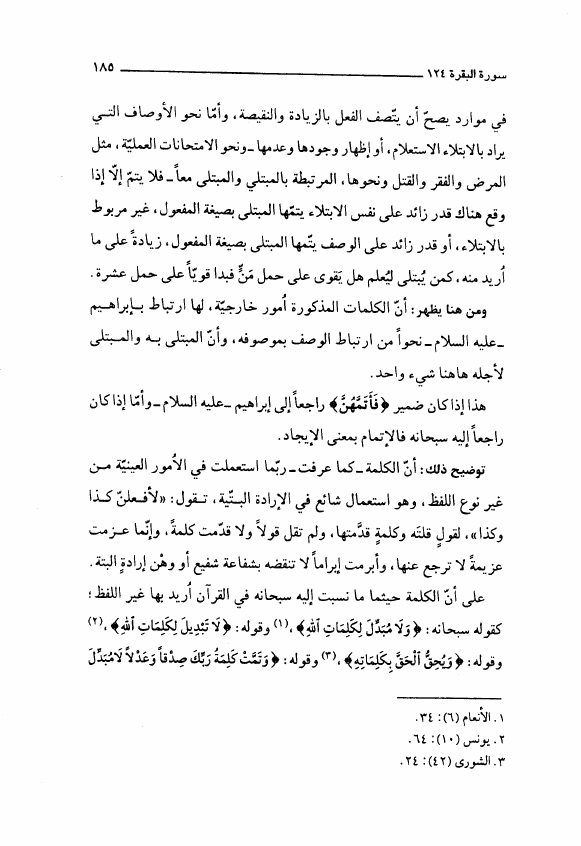 سورة البقرة ١٢٤ ١٨٥
في موارد يصحّ أن يتّصف الفعل بالزيادة والنقيصة، وأمّا نحو الأوصاف التـي
يراد بالابتلاء الاستعلام، أو إظهار وجودها وعدمها ـ ونحو الامتحانات العمليّة، مثل
المرض والفقر والقتل ونحوها، المرتبطة بالمبتلي والمبتلى معاً ـ فلا يتمّ إلّا إذا
وقع هناك قدر زائد على نفس الابتلاء يتمّها المبتلى بصيغة المفعول، غير مربوط
بالابتلاء، أو قدر زائد على الوصف يتّمها المبتلى بصيغة المفعول، زيادةً على ما
أُريد منه، كمن يُبتلى ليُعلم هل يَقوى على حمل مَنٍّ فبدا قويّاً على حمل عشرة.
ومن هنا يظهر: أنّ الكلمات المذكورة أُمور خارجيّة، لها ارتباط بـإبراهـيم
ـ عليه السلام ـ نحواً من ارتباط الوصف بموصوفه، وأنّ المبتلى بـه والمـبتلى
لأجله هاهنا شيء واحد.
هذا إذا كان ضمير ﴿فَأَتَمَّهُنَّ﴾ راجعاً إلى إبراهيم ـ عليه السلام ـ وأمّا إذا كان
راجعاً إليه سبحانه فالإتمام بمعنى الإيجاد.
توضيح ذلك: أنّ الكلمة ـ كما عرفت ـ ربّما استعملت في الأُمور العينيّة مـن
غير نوع اللفظ، وهو استعمال شائع في الإرادة البـتّية، تـقول: «لأفـعلنّ كـذا
وكذا»، لقولٍ قلتَه وكلمةٍ قدَّمتها، ولم تقل قولاً ولا قدّمت كلمةً، وإنّما عـزمت
عزيمةً لا ترجع عنها، وأبرمت إبراماً لا تنقضه بشفاعة شفيع أو وهْن إرادةٍ البتة.
على أنّ الكلمة حيثما ما نسبت إليه سبحانه في القرآن أُريد بها غير اللفظ؛
كقوله سبحانه: ﴿وَلَا مُبَدِّلَ لِكَلِمَاتِ اللهِ﴾، (١) وقوله: ﴿لَا تَبْدِيلَ لِكَلِمَاتِ اللهِ﴾، (٢)
وقوله: ﴿وَيُحِقُّ ٱلْحَقَّ بِكَلِمَاتِهِ﴾، (٣) وقوله: ﴿وَتَمَّتْ كَلِمَةُ رَبِّكَ صِدْقاً وَعَدْلاً لَامُبَدِّلَ
١. الأنعام (٦): ٣٤.
٢. يونس (١٠): ٦٤.
٣. الشورى (٤٢): ٢٤.